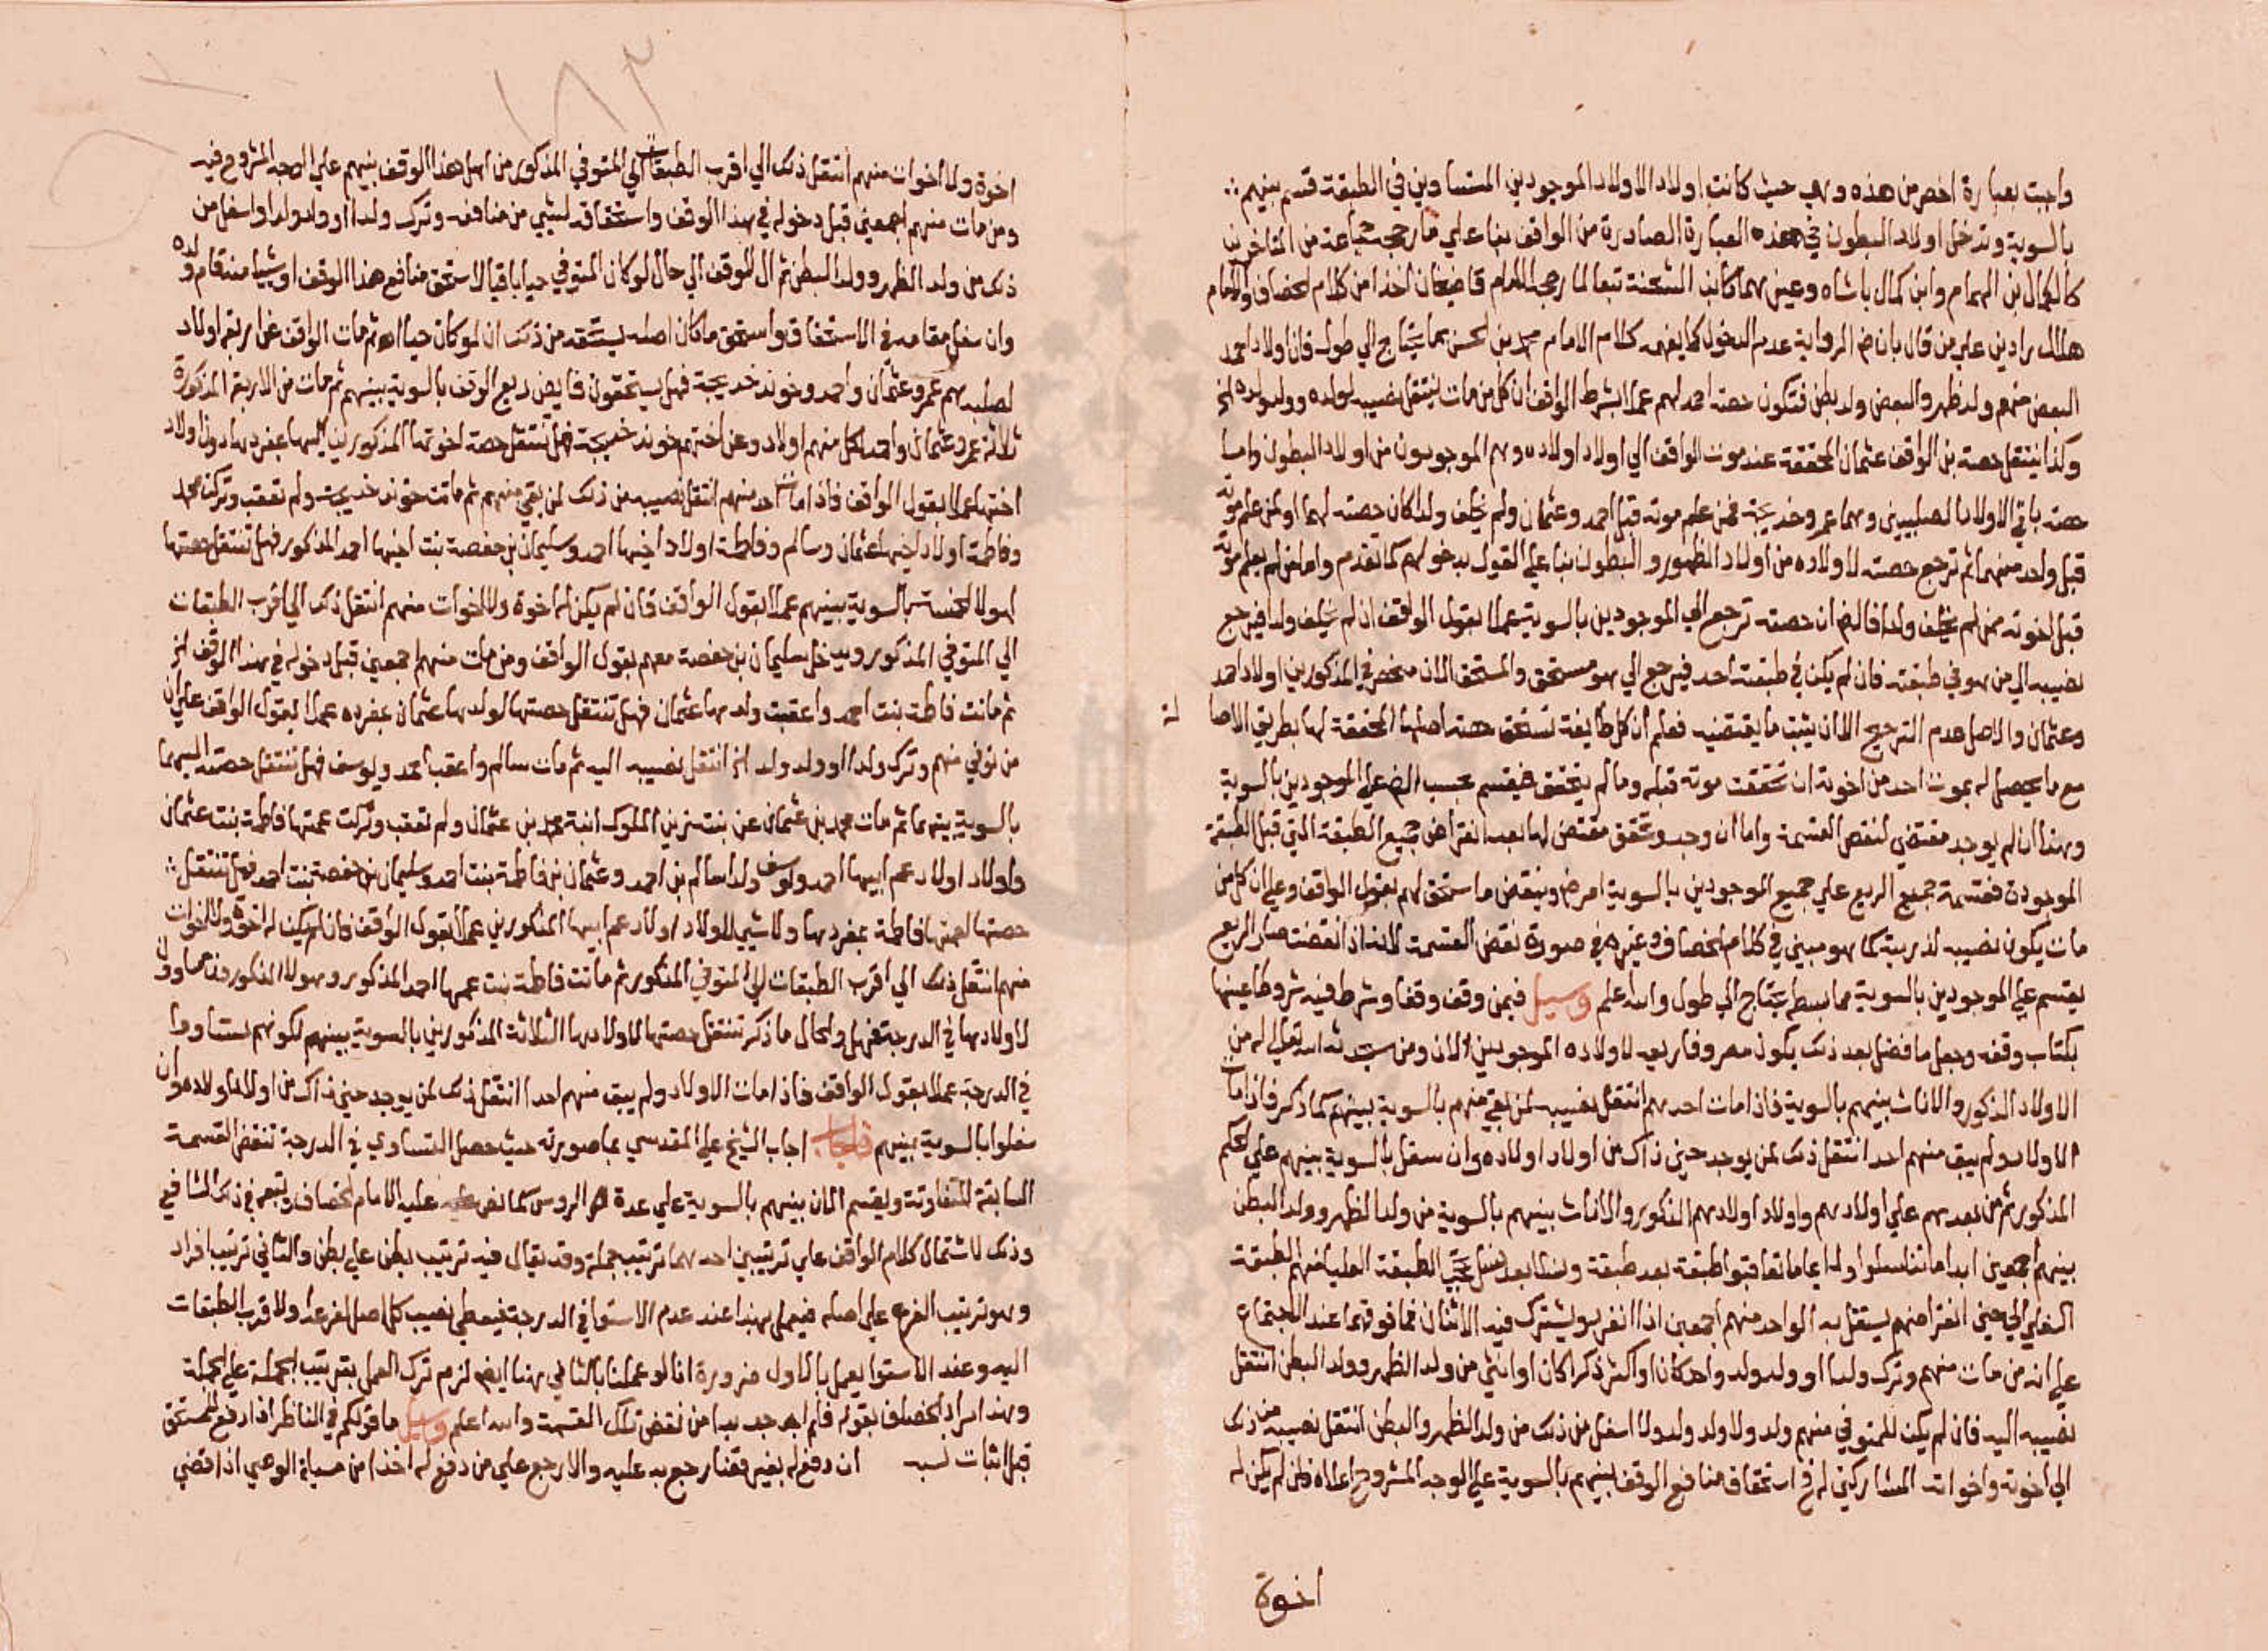 واجبت بعبارة اخصر من هذه وهي حيث كانت اولاد الاولاد الموجودين المتساوين في الطبقة قسم بينهم
بالسوية وتدخل اولاد البطون في هذه العبارة الصادرة من الواقف بنا علي ما رجحه جماعة من المتاخرين
كالكمال بن الهمام وابن كمال باشاه وغيرهما كابن الشحنة تبعا لما رجحه الامام قاضيخان اخذا من كلام الخصاف والامام
هلال رادين علي من قال بان ظ الرواية عدم الدخول كما يفهمه كلام الامام محمد بن الحسن بما يحتاج الي طول فان اولاد احمد
البعض منهم ولد ظهر والبعض ولد بطن فتكون حصة احمد لهم عملا بشرط الواقف ان كل من مات ينتقل نصيبه لولده وولد ولده الخ
وكذا ينتقل حصة بن الواقف عثمان المحققة عند موت الواقف الي اولاد اولاده وهم الموجودون من اولاد البطون واما
حصة باقي الاولاد الصلبيين وهما عمر وخديجة فمن علم موته قبل احمد وعثمان ولم يخلف ولدا كان حصته لهما او لمن علم موته
قبل واحد منهما ثم ترجع حصته لاولاده من اولاد الظهور والبطون بنا علي القول بدخولهم كما تقدم واما من لم يعلم موته
قبل اخوته ممن لم يخلف ولدا فالظ ان حصته ترجع الي الموجودين بالسوية عملا بقول الواقف ان لم يخلف ولدا فيرجع
نصيبه الي من هو في طبقته فان لم يكن في طبقته احد فيرجع الي هو مستحق والمستحق الان منحصر في المذكورين اولاد احمد
وعثمان والاصل عدم الترجيح الا ان يثبت ما يقتضيه فعلم ان كل طايفة تستحق حصة اصلها المحققة لها بطريق الاصا لة
مع ما يحصل له بموت احد من اخوته ان تحققت موته قبله وما لم يتحقق فيقسم بحسب الظ علي الموجودين بالسوية
وهذا ان لم يوجد مقتضي لنقص القسمة واما ان وجد وتحقق مقتض لها بعد انقراض جميع الطبقة التي قبل الطبقة
الموجودة فقسمة جميع الريع علي جميع الموجودين بالسوية امر ظ وينقض ما استحق لهم بقول الواقف وعلي ان كل من
مات يكون نصيبه لذريته كما هو مبين في كلام الخصاف وغيره في صورة نقض القسمة لانه اذا انقضت صار الريع
يقسم علي الموجودين بالسوية مما بسطه يحتاج الي طول والله اعلم وسيل فيمن وقف وقفا وشرط فيه شروطا عينها
بكتاب وقفه وجعل ما فضل بعد ذلك يكون مصروفا ريعه لاولاده الموجودين الان ومن سيحدثه الله تعالي له من
الاولاد الذكور والاناث بينهم بالسوية فاذا مات احدهم انتقل نصيبه لمن بقي منهم بالسوية بينهم كما ذكر فاذا مات
الاولاد ولم يبق منهم احد انتقل ذلك لمن يوجد حين ذاك من اولاد اولاده وان سفل بالسوية بينهم علي الحكم
المذكور ثم من بعدهم علي اولادهم واولاد اولادهم الذكور والاناث بينهم بالسوية من ولد الظهر وولد البطن
بينهم اجمعين ابدا ما تناسلوا ودايما ما تعاقبوا طبقة بعد طبقة ونسلا بعد نسل تحجب الطبقة العليا منهم الطبقة
السفلي الي حين انقراضهم يستقل به الواحد منهم اجمعين اذا انفرد ويشترك فيه الاثنان فما فوقهما عند الاجتماع
علي انه من مات منهم وترك ولدا او ولد ولد واحدا كان او اكثر ذكرا كان او انثي من ولد الظهر وولد البطن انتقل
نصيبه اليه فان لم يكن للمتوفي منهم ولد ولا ولد ولد ولا اسفل من ذلك من ولد الظهر والبطن انتقل نصيبه من ذلك
الي اخوته واخواته المشاركين له في استحقاق منافع الوقف بينهم بالسوية علي الوجه المشروح اعلاه فان لم يكن له
اخوة
١٨٣
اخوة ولا اخوات منهم انتقل ذلك الي اقرب الطبقات الي المتوفي المذكور من اهل هذا الوقف بينهم علي الوجه المشروح فيه
ومن مات منهم اجمعين قبل دخوله في هذا الوقف واستحقاقه لشيي من منافعه وترك ولدا او ولد ولد او اسفل من
ذلك من ولد الظهر وولد البطن ثم ال الوقف الي حال لو كان المتوفي حيا باقيا لاستحق منافع هذا الوقف او شيا منه قام ولده
وان سفل مقامه في الاستحقاق واستحق ما كان اصله يستحقه من ذلك ان لو كان حيا اه ثم مات الواقف عن اربعة اولاد
لصلبه هم عمر وعثمان واحمد وخوند خديجة فهل يستحقون فايض ريع الوقف بالسوية بينهم ثم مات من الاربعة المذكورة
ثلاثة عمر وعثمان واحمد لكل منهم اولاد وعن اختهم خوند خديجة فهل تنتقل حصة اخوتها المذكورين اليها بمفردها دون اولاد
اختها عملا بقول الواقف فاذا مات احد منهم انتقل نصيبه من ذلك لمن بقي منهم ثم ماتت خوند خديجة ولم تعقب وتركت محمد
وفاطمة اولاد اخيها عثمان وسالم وفاطمة اولاد اخيها احمد وسليمان بن حفصة بنت اخيها احمد المذكور فهل تنتقل حصتها
لهولا الخمسة بالسوية بينهم عملا بقول الواقف فان لم يكن له اخوة ولا اخوات منهم انتقل ذلك الي اقرب الطبقات
الي المتوفي المذكور ويدخل سليمان بن حفصة معهم بقول الواقف ومن مات منهم اجمعين قبل دخوله في هذا الوقف الخ
ثم ماتت فاطمة بنت احمد واعقبت ولدها عثمان فهل تنتقل حصتها لولدها عثمان بمفرده عملا بقول الواقف علي ان
من توفي منهم وترك ولدا او ولد ولد الخ انتقل نصيبه اليه ثم مات سالم واعقب احمد ويوسف فهل تنتقل حصته اليهما
بالسوية بينهما ثم مات محمد بن عثمان عن بنت زين الملوك ابنة محمد بن عثمان ولم تعقب وتركت عمتها فاطمة بنت عثمان
واولاد اولاد عم ابيها احمد ويوسف ولدا سالم بن احمد وعثمان بن فاطمة بنت احمد وسليمان بن حفصة بنت احمد فهل تنتقل
حصتها لعمتها فاطمة بمفردها ولا شيي لاولاد اولاد عم ابيها المذكورين عملا بقول الواقف فان لم يكن له اخوة ولا اخوات
منهم انتقل ذلك الي اقرب الطبقات الي المتوفي المذكور ثم ماتت فاطمة بنت عمها احمد المذكور وهولا المذكورون
لاولادها في الدرجة فهل والحال ما ذكر تنتقل حصتها لاولادها الثلاثة المذكورين بالسوية بينهم لكونهم تساووا
في الدرجة عملا بقول الواقف فاذا مات الاولاد ولم يبق منهم احد انتقل ذلك لمن يوجد حين ذاك من اولاد اولاده وان
سفلوا بالسوية بينهم فاجاب اجاب الشيخ علي المقدسي بما صورته حيث حصل التساوي في الدرجة تنقض القسمة
السابقة المتفاوتة ويقسم الان بينهم بالسوية علي عدة الروس كما نص عليه الامام الخصاف وتبعه في ذلك الشافعي
وذلك لاشتمال كلام الواقف علي ترتيبين احدهما ترتيب جملة وقد يقال فيه ترتيب بطن علي بطن والثاني ترتيب افراد
وهو ترتيب الفرع علي اصله فيعمل بهذا عند عدم الاستوا في الدرجة فيعطي نصيب كل اصل لفرعه او لاقرب الطبقات
اليه وعند الاستوا يعمل بالاول ضرورة انا لو عملنا بالثاني هنا ايض لزم ترك العمل بترتيب الجملة علي الجملة
وهذا مراد الخصاف بقوله فلم اجد بدا من نقض تلك القسمة والله اعلم وسيل ما قولكم في الناظر اذا دفع للمستحق
قبل اثبات نسبه ان دفع له بغير قضا رجع به عليه والا رجع علي من دفع له اخذا من مسيلة الوصي اذا قضي